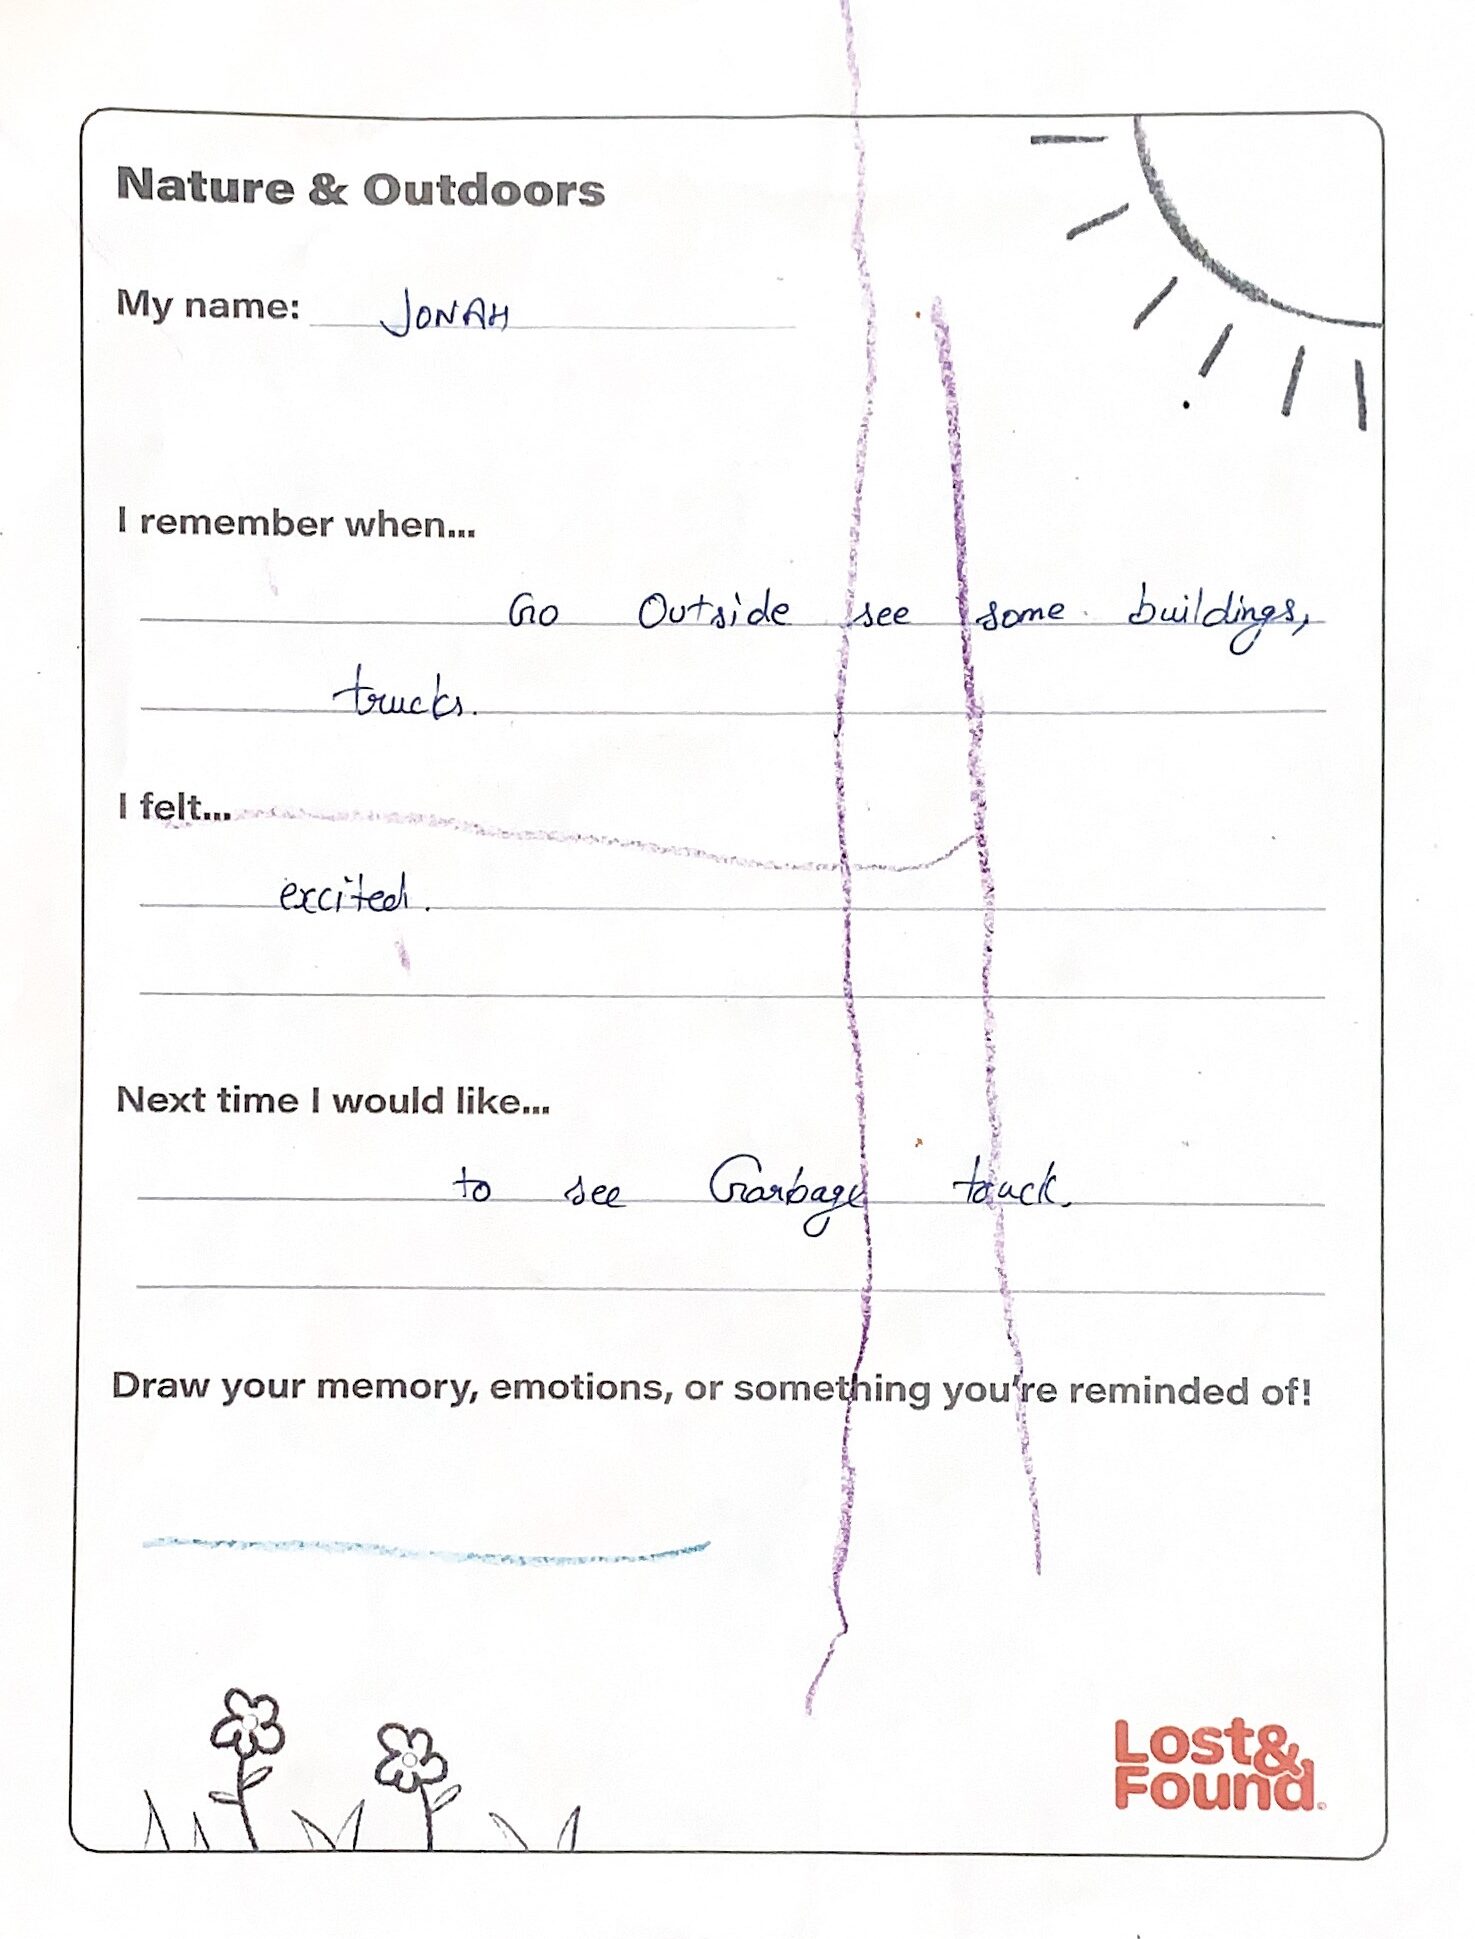 Nature & Outdoors
My name: JONAH
I remember when...
Go Outside see some buildings,
trucks.
I felt...
excited.
Next time I would like...
to see Garbage truck.
Draw your memory, emotions, or something you're reminded of!
Lost&
Found